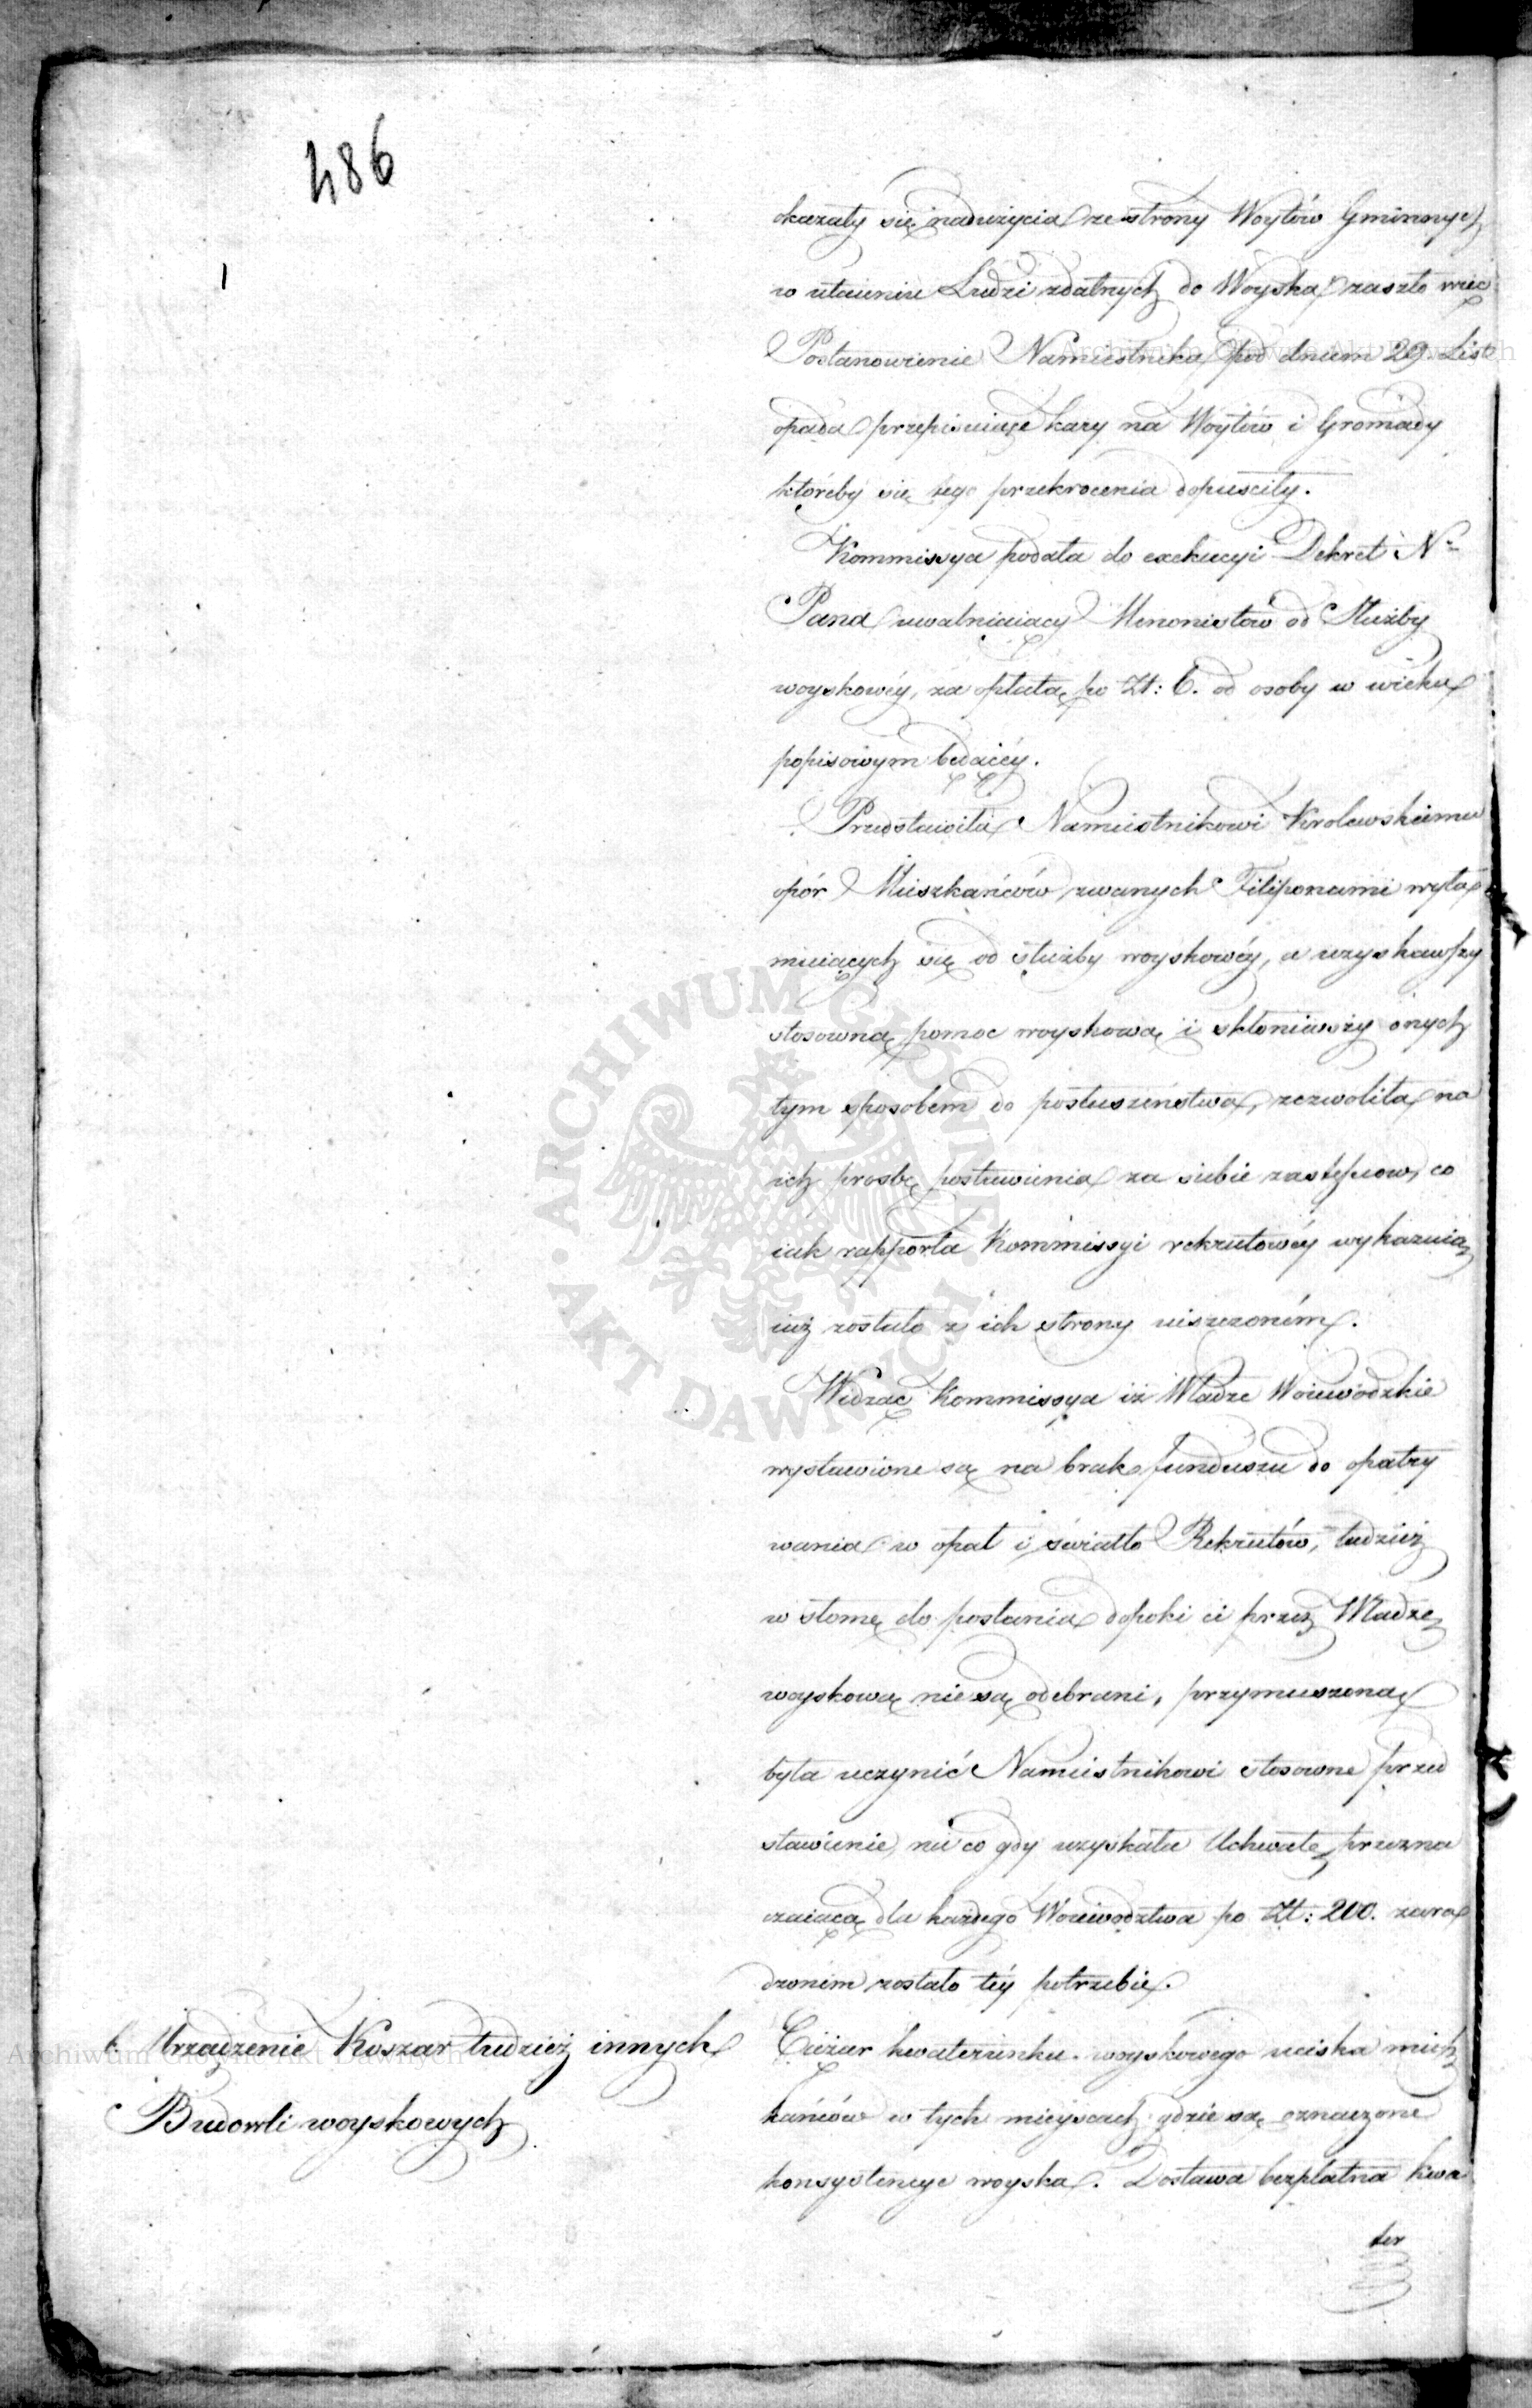 486
okazały się nadużycia ze strony Woytów Gminnych
w utaieniu Ludzi zdatnych do Woyska, zaszło więc
Postanowienie Namiestnika pod dniem 29. List
opada przepisuiące kary na Woytów i Gromady
któreby się tego przekroczenia dopuściły.
Kommissya podała do exekucyi Dekret N.
Pana uwalniaiący Menonistów od Służby
woyskowéy, za opłatą po Zł: 6. od osoby w wieku
popisowym będącéy.
Przedstawiła Namiestnikowi Królewskiemu
opór Mieszkańców zwanych Filiponami wyła
muiących się od służby woyskowéy, a uzyskawszy
stosowną pomoc woyskową i skłoniwszy onych
tym sposobem do posłuszeństwa, zezwoliła na
ich prośbę postawienia za siebie zastępców, co
iak rapporta Kommissyi rekrutowéy wykazuią
iuż zostało z ich strony uiszczoném.
Widząc Kommissya iż Władze Woiewódzkie
wystawione są na brak funduszu do opatry
wania w opał i światło Rekrutów, tudzież
w słomę do posłania dopóki ci przez Władzę
woyskową nie są odebrani, przymuszona
była uczynić Namiestnikowi stosowne przed
stawienie, na co gdy uzyskała Uchwałę przezna
czaiącą dla każdego Woiewództwa po Zł: 200. zara
dzoném zostało téy potrzebie.
6. Urządzenie Koszar tudzież innych
Budowli woyskowych
Ciężar kwaterunku woyskowego uciska miesz
kańców w tych mieyscach gdzie są oznaczone
konsystencye woyska. Dostawa bezpłatna kwa
ter
Archiwum Główne Akt Dawnych
ARCHIWUM GŁÓWNE AKT DAWNYCH
Archiwum Główne Akt Dawnych